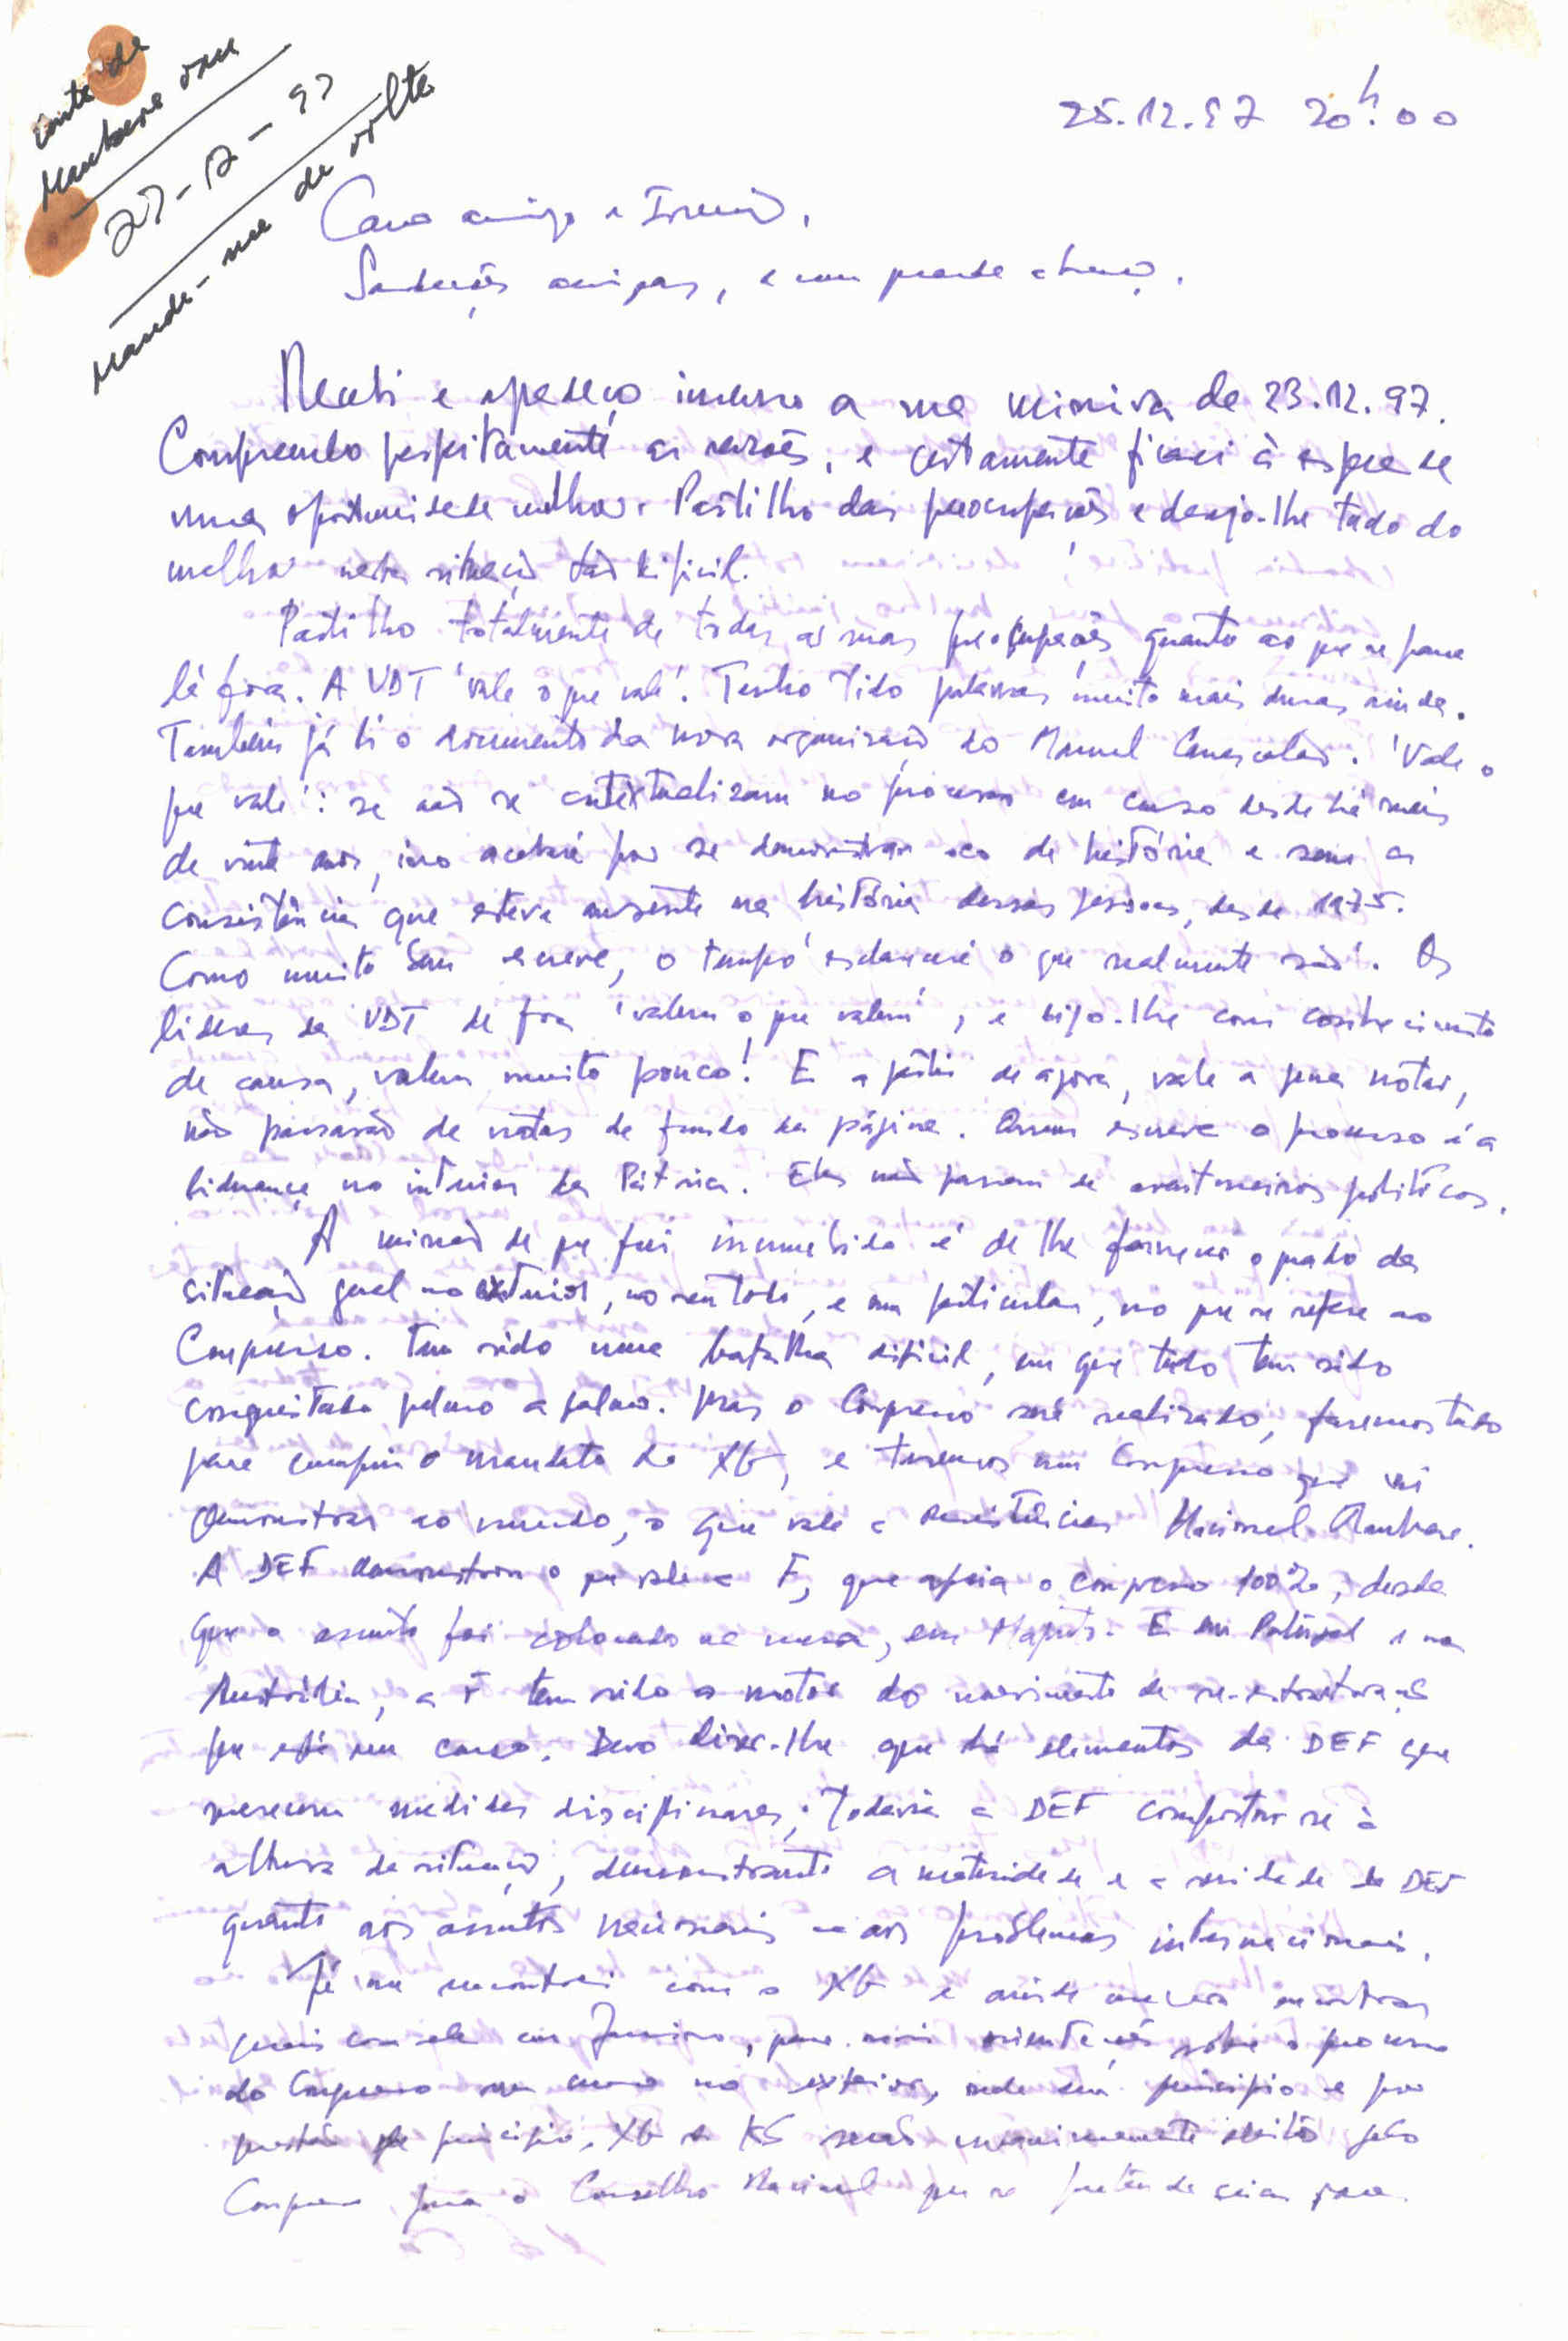 Conte da
Maubere oan
27-12-97
Mande-me de volta
25.12.97 20h.00
Caro amigo e Irmão,
Saudações amigas, e um grande abraço.
Recebi e agradeço imenso a sua missiva de 23.12.97.
Compreendo perfeitamente as razões, e certamente ficarei à espera de
uma oportunidade melhor. Partilho das preocupações e desejo-lhe tudo do
melhor nesta situação tão difícil.
Partilho totalmente de todas as suas preocupações quanto ao que se passa
lá fora. A UDT 'vale o que vale'. Tenho tido palavras muito mais duras ainda.
Também já li o documento da nova organização do Manuel Carrascalão. 'Vale o
que vale': se não se contextualizam no processo em curso desde há mais
de vinte anos, isso acabará por se demonstrar oco de história e sem a
consistência que esteve ausente na história dessas pessoas, desde 1975.
Como muito bem escreve, o tempo 'esclarecerá o que realmente são'. Os
líderes da UDT de fora 'valem o que valem', e digo-lhe com conhecimento
de causa, valem muito pouco! E a partir de agora, vale a pena notar,
não passarão de notas de fundo da página. Quem escreve o processo é a
liderança no interior da Pátria. Eles não passam de aventureiros políticos.
A missão de que fui incumbido é de lhe fornecer o quadro da
situação geral no exterior, no seu todo, e em particular, no que se refere ao
Congresso. Tem sido uma batalha difícil, em que tudo tem sido
conquistado palmo a palmo. Mas o Congresso será realizado, faremos tudo
para cumprir o mandato do XG, e teremos um Congresso que vai
demonstrar ao mundo, o que vale a Resistência Nacional Maubere.
A DEF demonstrou o que vale a F, que apoia o congresso 100%, desde
que o assunto foi colocado na mesa, em Maputo. E em Portugal e na
Austrália, a F tem sido o motor do movimento de re-estruturação
que está em curso. Devo dizer-lhe que há elementos da DEF que
merecem medidas disciplinares; todavia a DEF comportou-se à
altura da situação, demonstrando a maturidade e a unidade da DEF
quanto aos assuntos nacionais e aos problemas internacionais.
Já me encontrei com o XG e ainde me vou encontrar
mais com ele em Janeiro, para mais orientações sobre o processo
do Congresso em curso no exterior, onde em princípio e por
questão de princípio, XG e KS serão unanimemente eleitos pelo
Congresso para o Conselho Nacional que se pretende criar para